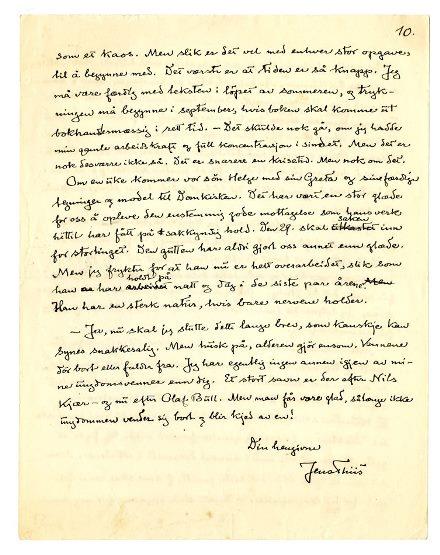 10.
som et kaos. Men slik er det vel med enhver stor opgave,
til å begynne med. Det værste er at tiden er så knapp. Jeg
må være færdig med teksten i löpet av sommeren, og tryk-
ningen må begynne i september, hvis boken skal komme ut
bokhandlermæssig i rett tid. – Det skulde nok gå, om jeg hadde
min gamle arbeidskraft og full koncentrasjon i sindet. Men det er
nok desværre ikke så. Det er snarere en krisetid. Men nok om det.
Om en uke kommer vor sön Helge med sin Greta og sine færdige
tegninger og model til Domkirken. Det har vært en stor glæde
for oss å opleve den enstemmig gode mottagelse som hans verk
hittil har fått på sakkyndig hold. Den 29. skal saken inn
for stortinget. Den gutten har aldri gjort oss annet enn glæde.
Men jeg frykter for at han nu er helt overarbeidet, slik som
han har holdt på natt og dag i de siste par årene.
Han har en sterk natur, hvis bare nervene holder.
– Ja, nu skal jeg slutte dette lange brev, som kanskje kan
synes snakkesalig. Men husk på, alderen gjör ensom. Vennene
dör bort eller falder fra. Jeg har egentlig ingen annen igjen av mi-
ne ungdomsvenner enn dig. Et stort savn er der efter Nils
Kjær – og nu efter Olaf Bull. Men man får være glad, sålenge ikke
ungdommen vender sig bort og blir kjed av en!
Din hengivne
Jens Thiis